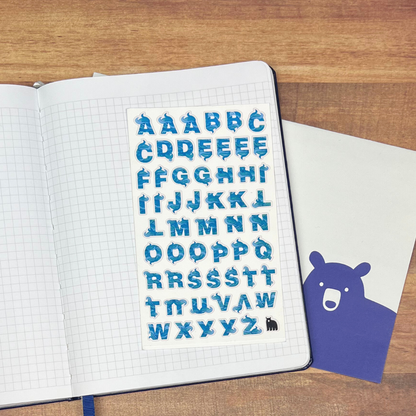 A A A B B C
C D D E E E E
F F G G H H I
I I J J K K L
L M M N N
O O O P P Q
R R S S S T T
T U U V A W
W X X X Z